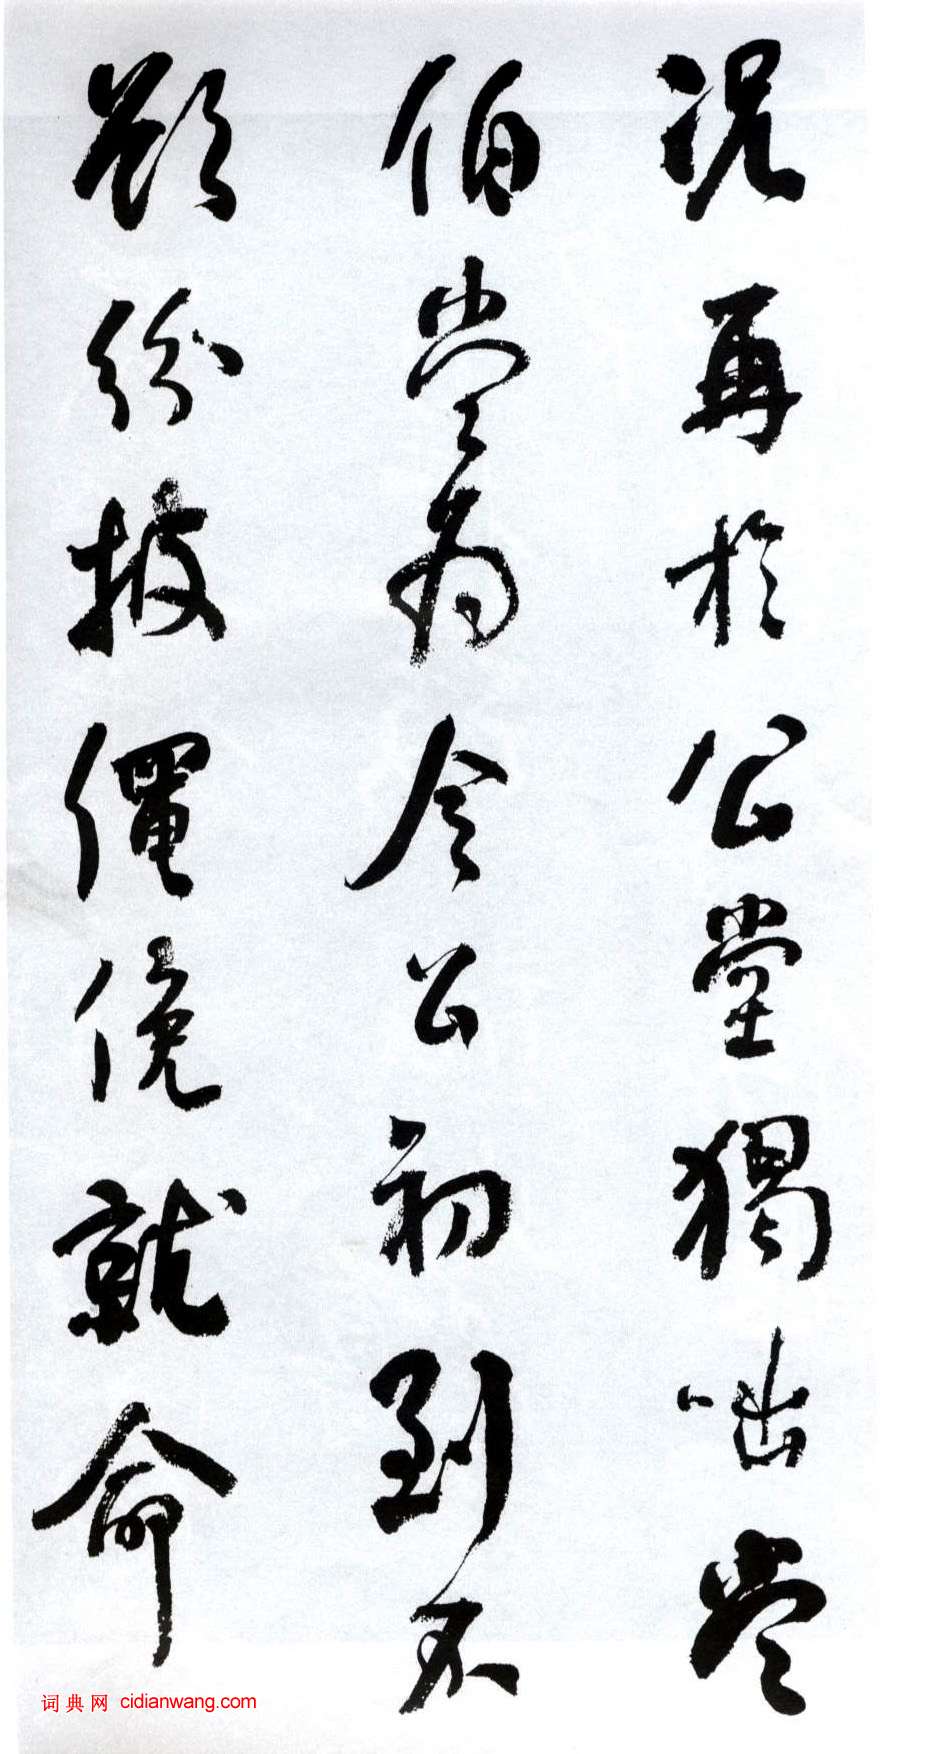 況再於公堂獨咄嘗
伯嘗為令公初到不
欲紛披僶俛就命
词典网 cidianwang.com